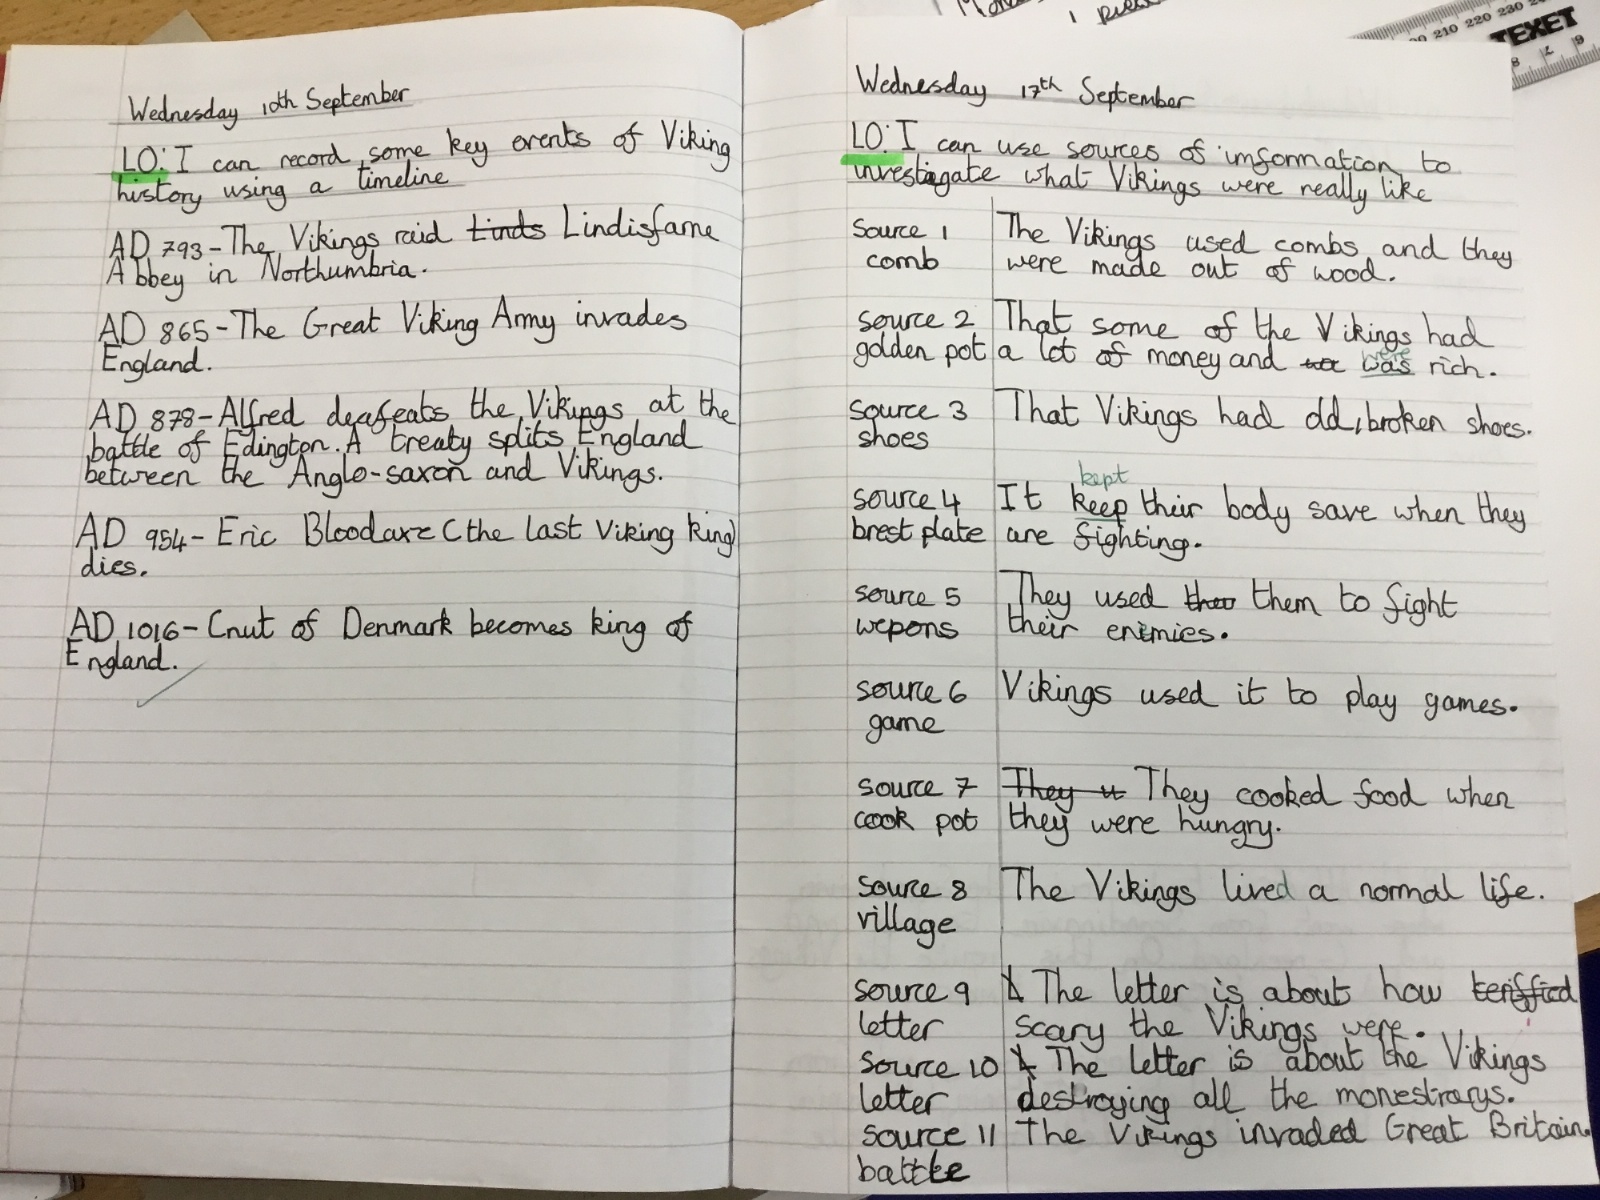 Wednesday 10th September
LO: I can record some key events of Viking
history using a timeline
AD 793 - The Vikings raid Linds Lindisfarne
Abbey in Northumbria.
AD 865 - The Great Viking Army invades
England.
AD 878 - Alfred deafeats the Vikings at the
battle of Edington. A treaty splits England
between the Anglo-saxon and Vikings.
AD 954 - Eric Bloodaxe (the last Viking king)
dies.
AD 1016 - Cnut of Denmark becomes king of
England.
Wednesday 17th September
LO: I can use sources of imformation to
investigate what Vikings were really like
Source 1 The Vikings used combs and they
comb were made out of wood.
source 2 That some of the Vikings had
were
golden pot a lot of money and was rich.
source 3 That Vikings had old, broken shoes.
shoes
kept
source 4 It keep their body save when they
brest plate are fighting.
source 5 They used them to fight
wepons their enimies.
source 6 Vikings used it to play games.
game
source 7 They u They cooked food when
cook pot they were hungry.
source 8 The Vikings lived a normal life.
village
source 9 The letter is about how teriffied
letter scary the Vikings were.
source 10 The letter is about the Vikings
letter destroying all the monestrarys.
source 11 The Vikings invaded Great Britain.
battle
210 220 230
TEXET
8 7 6